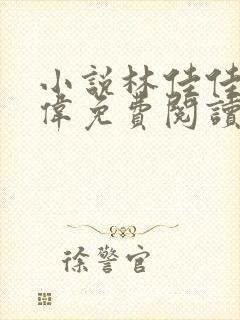 小說林佳佳
偉免費閱讀
徐警官